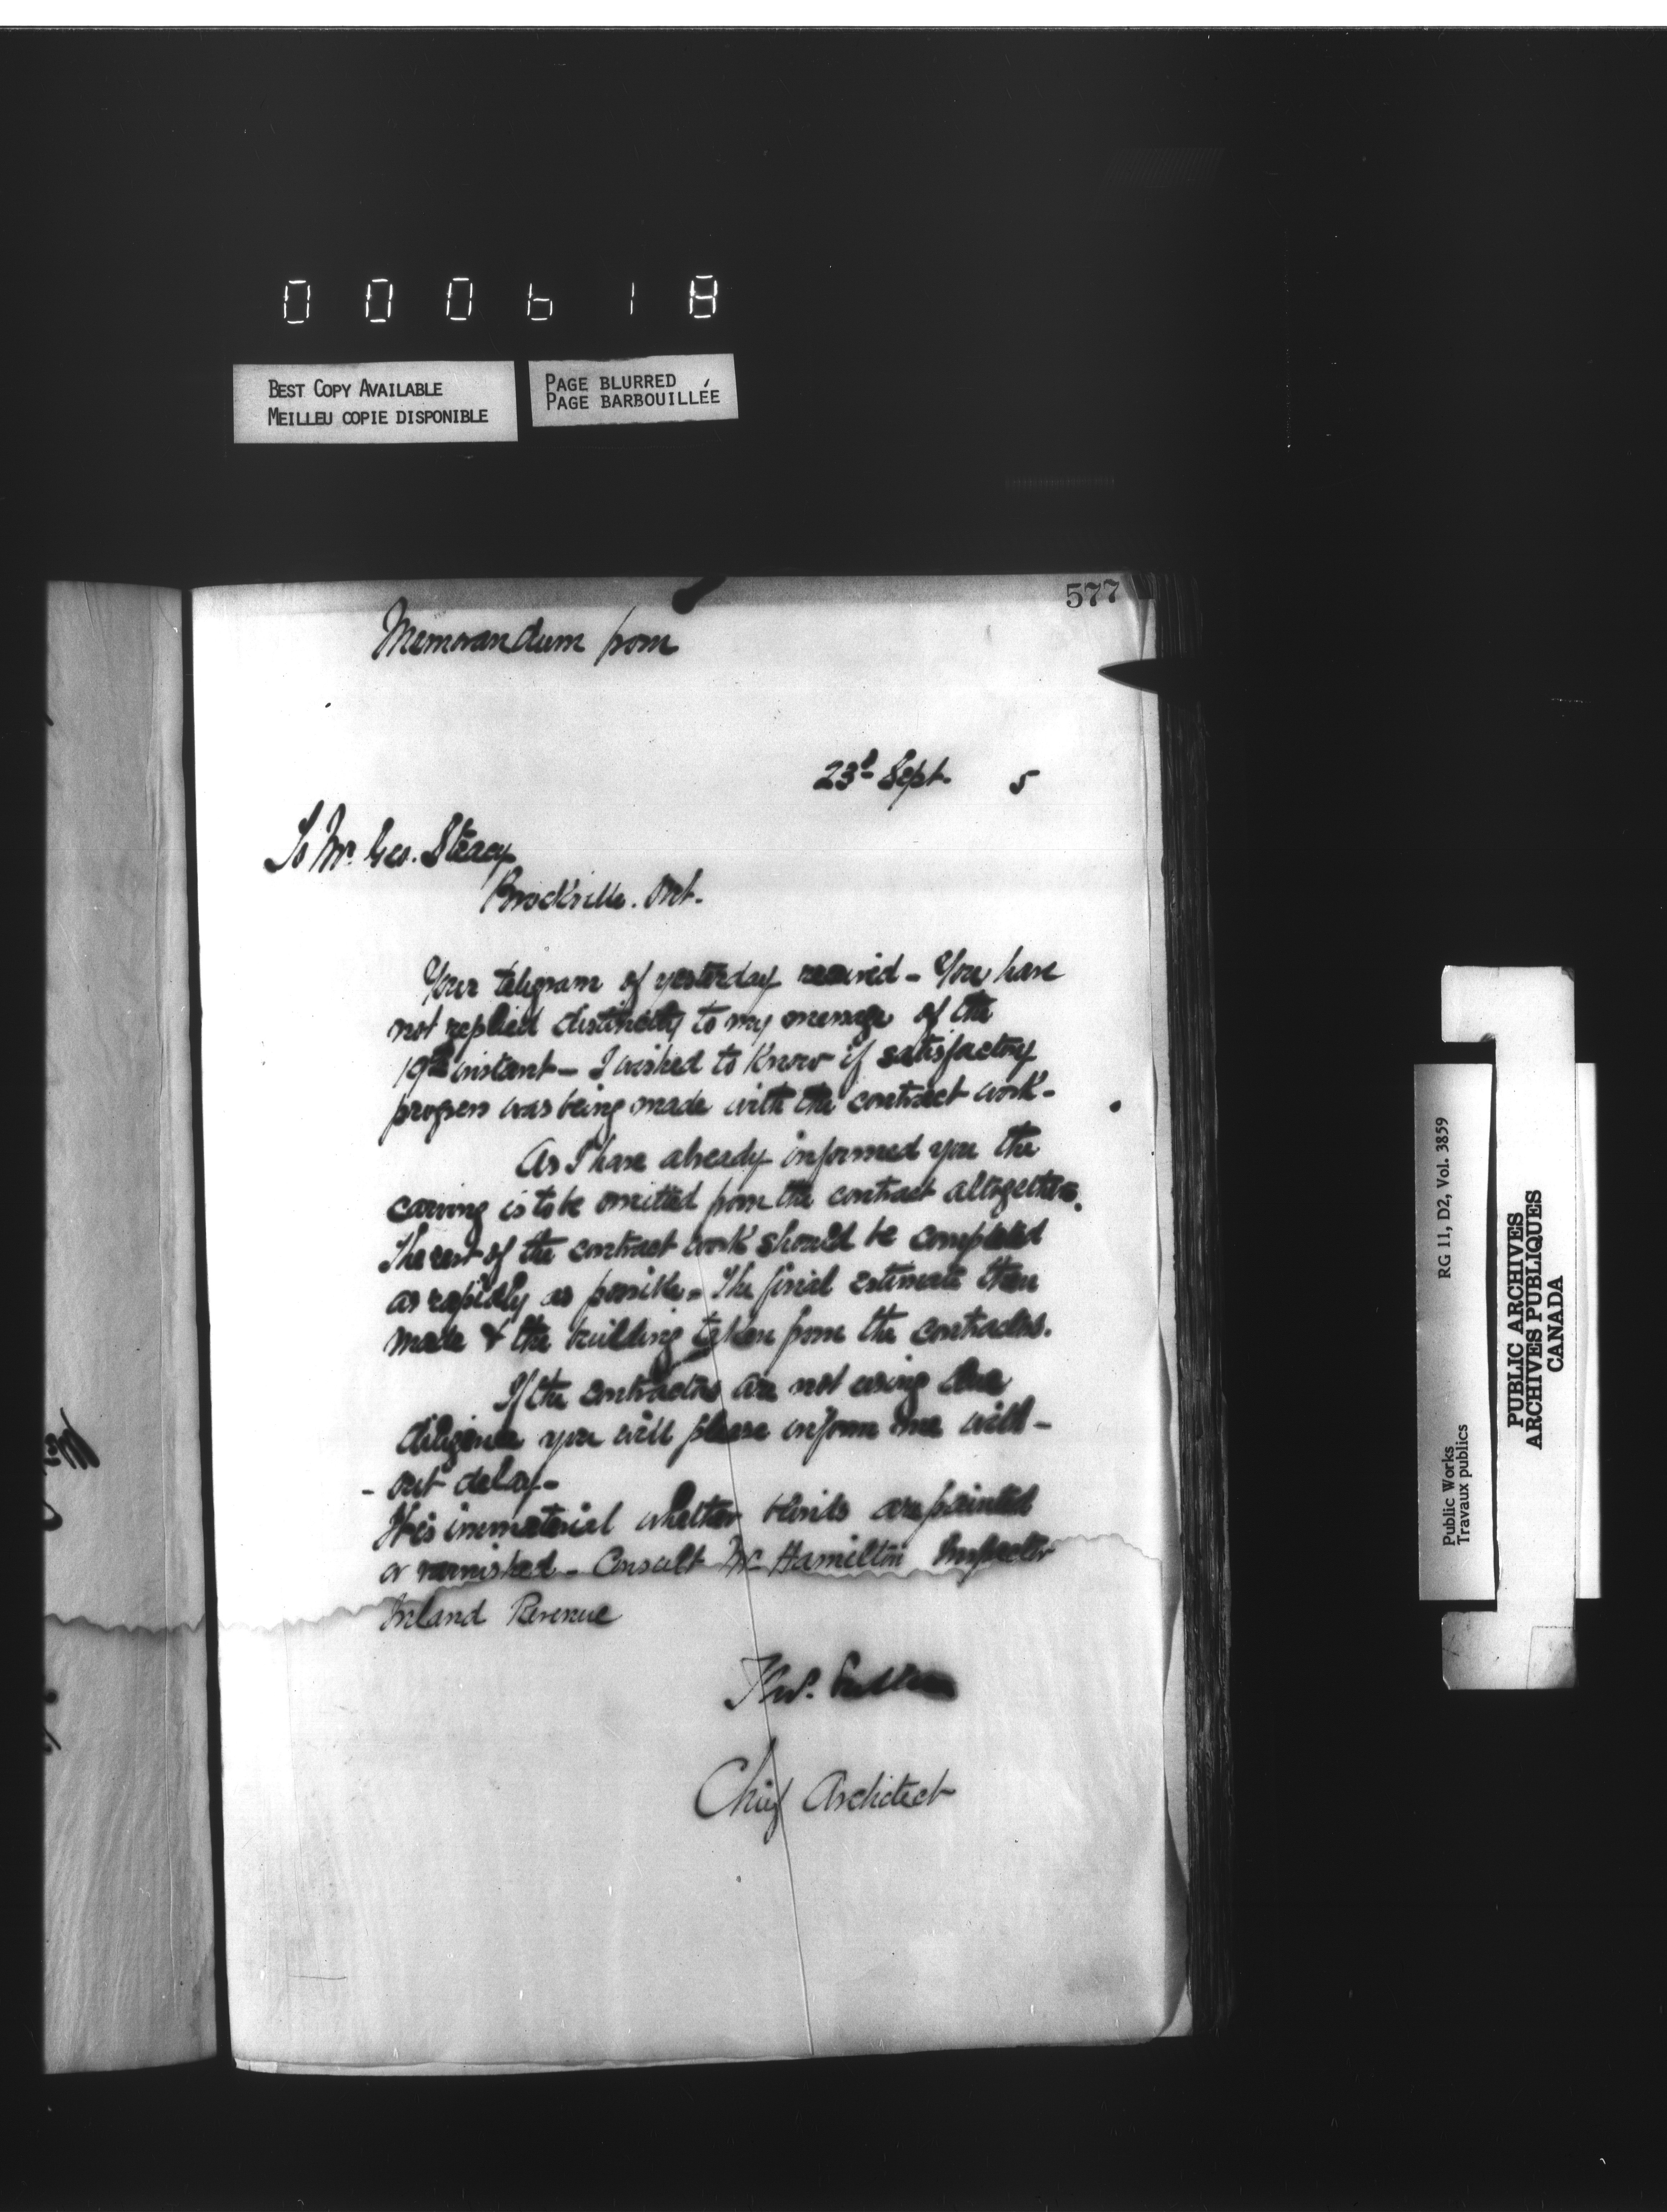 000618
BEST COPY AVAILABLE
MEILLEU COPIE DISPONIBLE
PAGE BLURRED
PAGE BARBOUILLÉE
577
Memorandum from
23d Sept. 5
To Mr. Geo. Steacy
Brockville. Ont.
Your telegram of yesterday received - You have
not replied distinctly to my message of the
19th instant - I wished to know if satisfactory
progress was being made with the contract work -
As I have already informed you the
carving is to be omitted from the contract altogether.
The rest of the contract work should be completed
as rapidly as possible - The final estimate then
made & the building taken from the contractors.
If the contractors are not using due
diligence you will please inform me with-
- out delay -
It is immaterial whether blinds are painted
or varnished - Consult Mr. Hamilton Inspector
Inland Revenue
Thos. Fuller
Chief Architect
RG 11, D2, Vol. 3859
Public Works
Travaux publics
PUBLIC ARCHIVES
ARCHIVES PUBLIQUES
CANADA